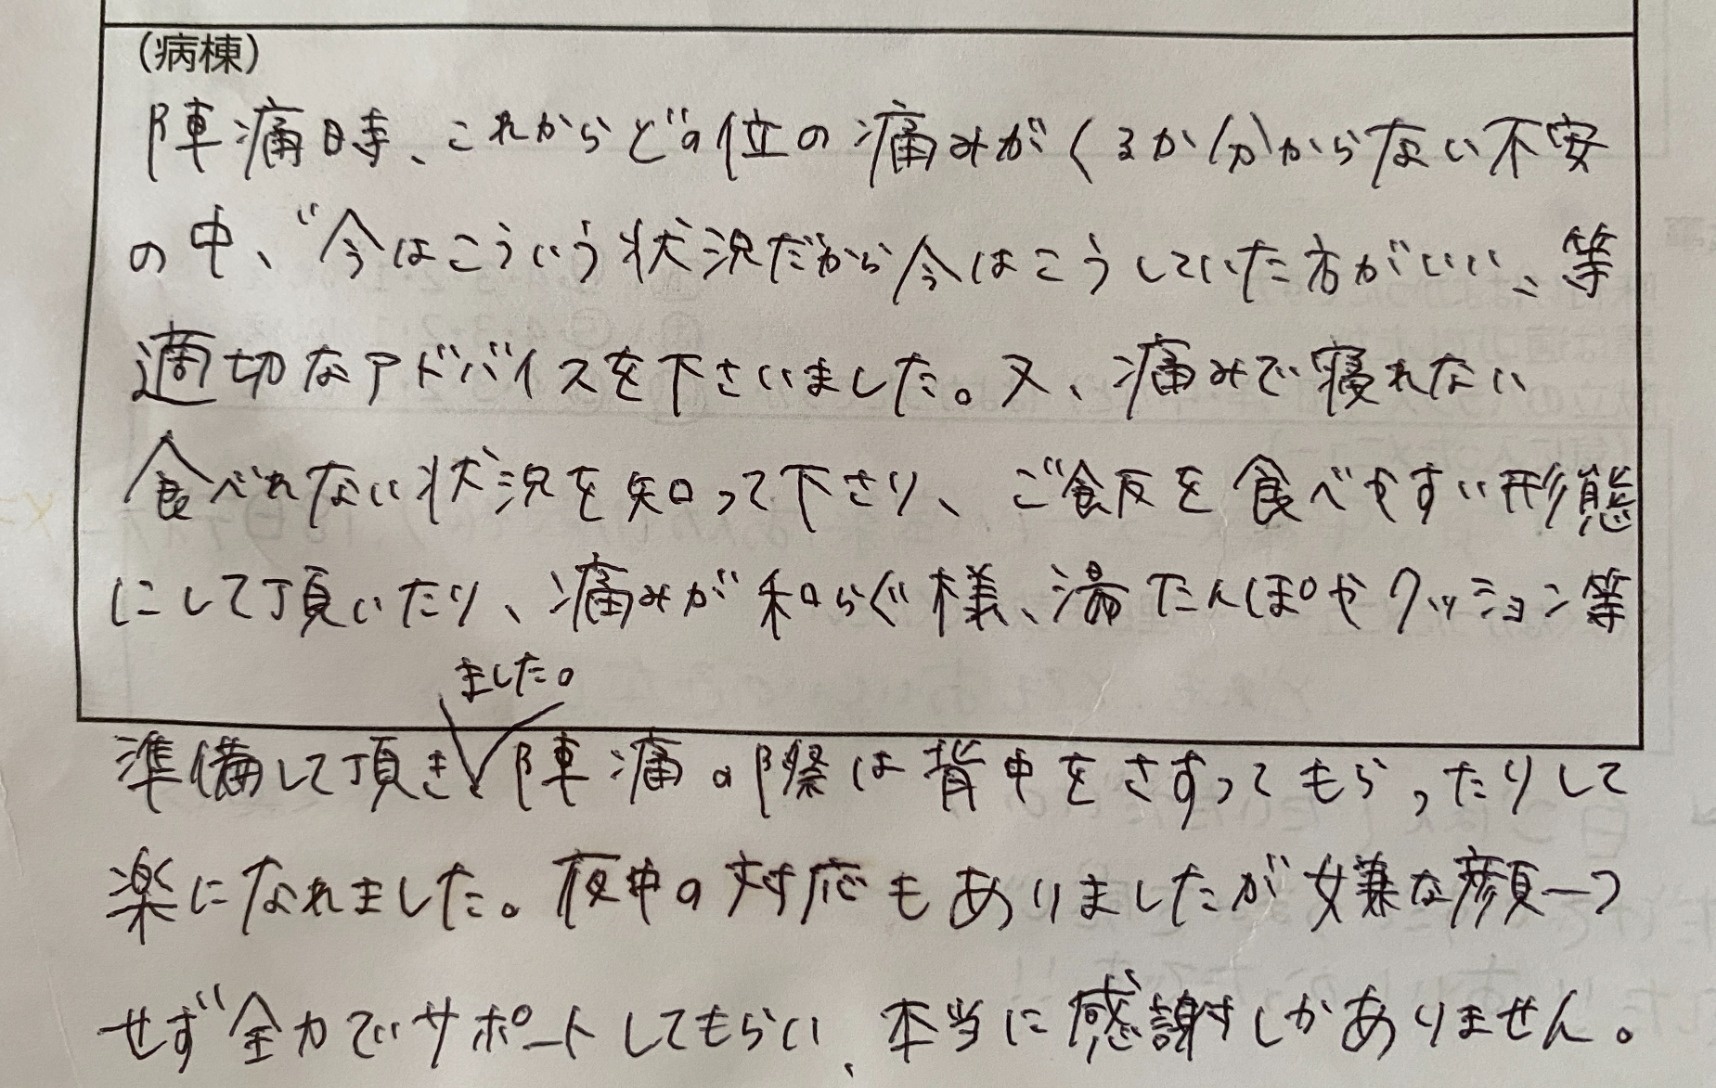 (病棟)
陣痛時、これからどの位の痛みがくるか分からない不安
の中、“今はこういう状況だから今はこうしていた方がいい〟等
適切なアドバイスを下さいました。又、痛みで寝れない
食べれない状況を知って下さり、ご飯を食べやすい形態
にして頂いたり、痛みが和らぐ様、湯たんぽやクッション等
ました。
準備して頂き陣痛の際は背中をさすってもらったりして
楽になれました。夜中の対応もありましたが嫌な顔一つ
せず全力でサポートしてもらい、本当に感謝しかありません。